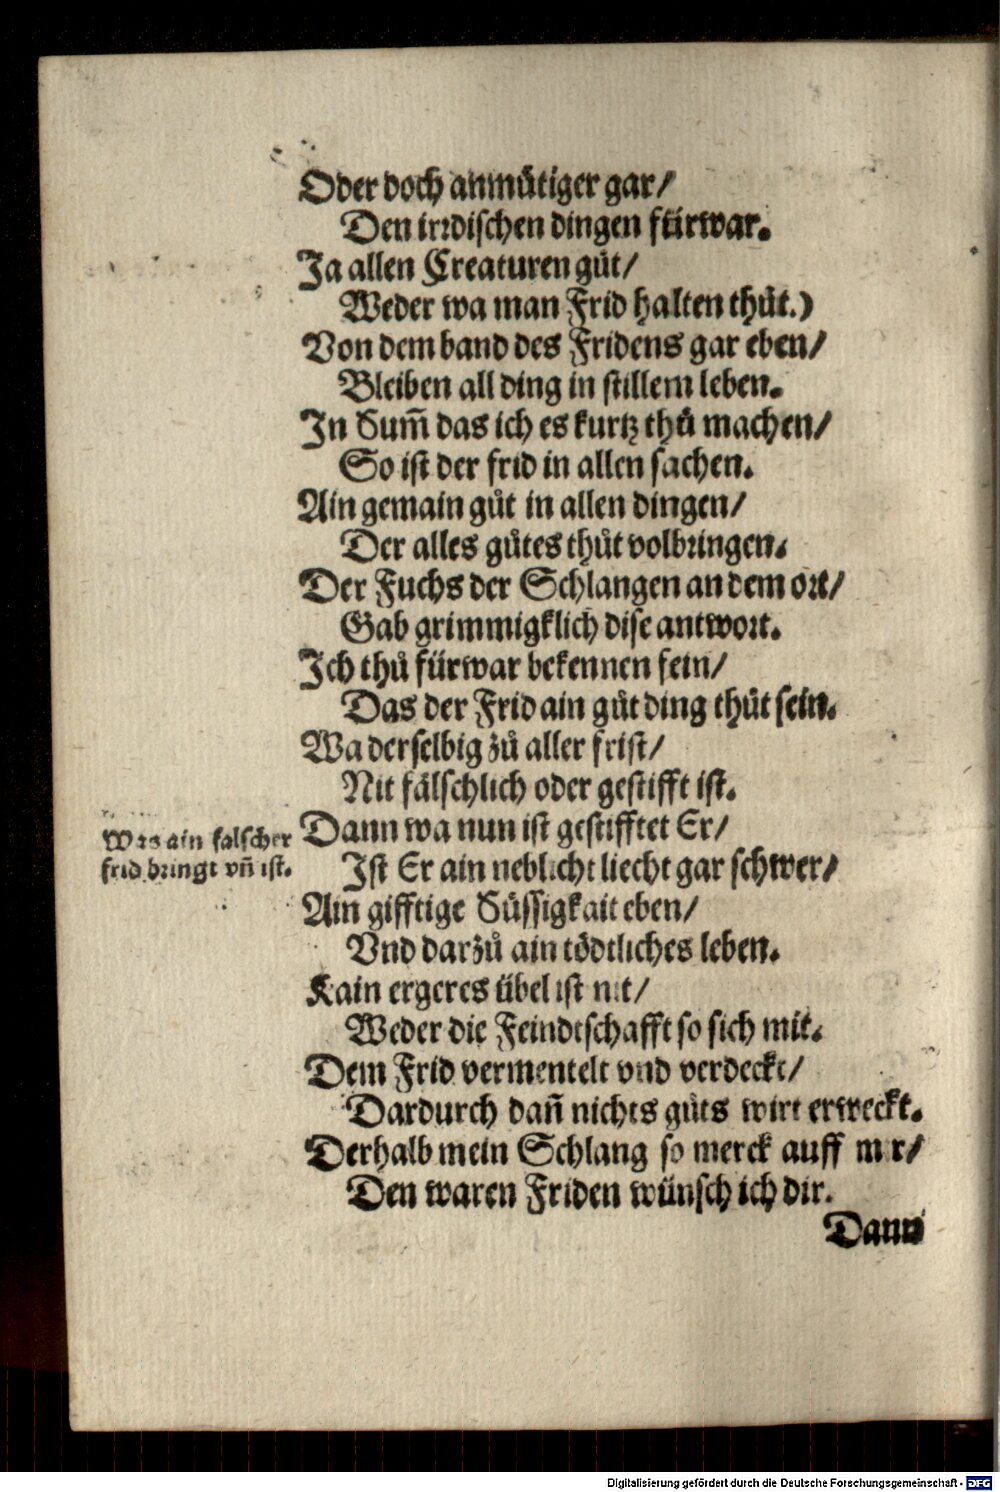 Oder doch anmuͤtiger gar/
Den irrdischen dingen fürwar.
Ja allen Creaturen guͦt/
Weder wa man Frid halten thuͦt.)
Von dem band des Fridens gar eben/
Bleiben all ding in stillem leben.
In Sum̃ das ich es kurtz thuͦ machen/
So ist der frid in allen sachen.
Ain gemain guͦt in allen dingen/
Der alles guͦtes thuͦt volbringen.
Der Fuchs der Schlangen an dem ort/
Gab grimmigklich dise antwort.
Ich thuͦ fürwar bekennen fein/
Das der Frid ain guͦt ding thuͦt sein.
Wa derselbig zuͦ aller frist/
Nit fälschlich oder gestifft ist.
Was ain falscher
frid bringt vñ ist.
Dann wa nun ist gestifftet Er/
Ist Er ain neblicht liecht gar schwer/
Ain gifftige Süssigkait eben/
Vnd darzuͦ ain tödtliches leben.
Kain ergeres übel ist nit/
Weder die Feindtschafft so sich mit.
Dem Frid vermentelt vnd verdeckt/
Dardurch dañ nichts guͦts wirt erweckt.
Derhalb mein Schlang so merck auff mir/
Den waren Friden wünsch ich dir.
Dann
Digitalisierung gefördert durch die Deutsche Forschungsgemeinschaft - DFG